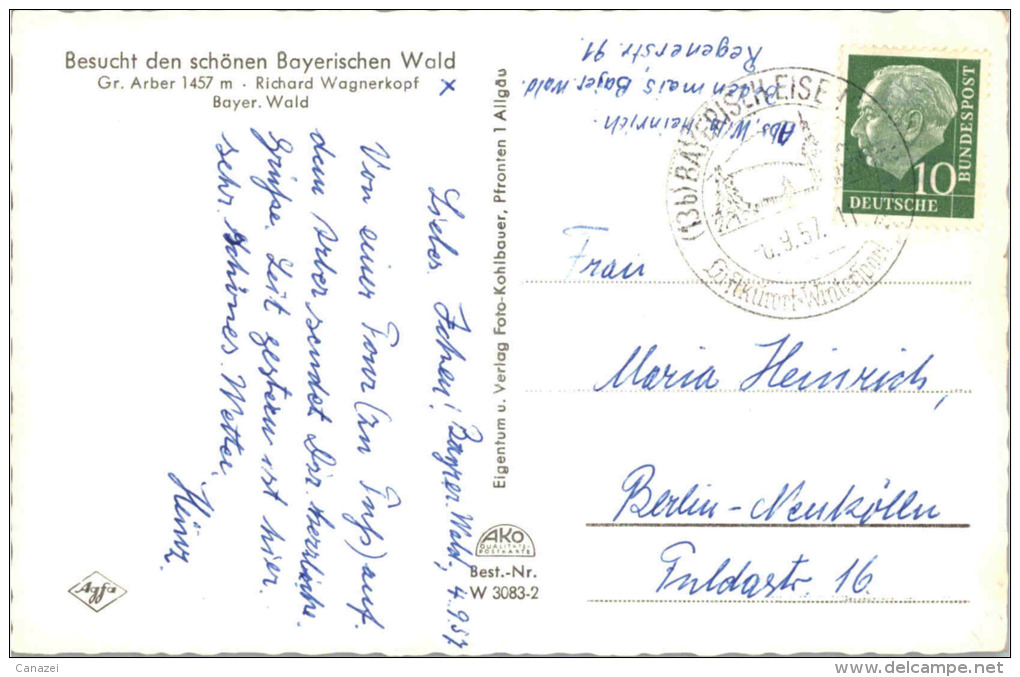 Besucht den schönen Bayerischen Wald
Gr. Arber 1457 m · Richard Wagnerkopf
Bayer. Wald
x
Bayer. Wald, 4.9.57
Von einer Tour (zu Fuß) auf
dem Arber sendet Dir herzliche
Grüße. Seit gestern ist hier
sehr schönes Wetter.
Heinz.
Eigentum u. Verlag Foto-Kohlbauer, Pfronten 1 Allgäu
AKO
QUALITÄTS-
POSTKARTE
Best.-Nr.
W 3083-2
Agfa
Abs. Heinrich.
Bodenmais, Bayer. Wald.
Regenerstr. 91
(13b) BAYERISCH EISE
.9.57.
Luftkurort-Wintersport
10
DEUTSCHE
BUNDESPOST
Frau
Maria Heinrich,
Berlin-Neukölln
Fuldastr. 16
Canazei
www.delcampe.net